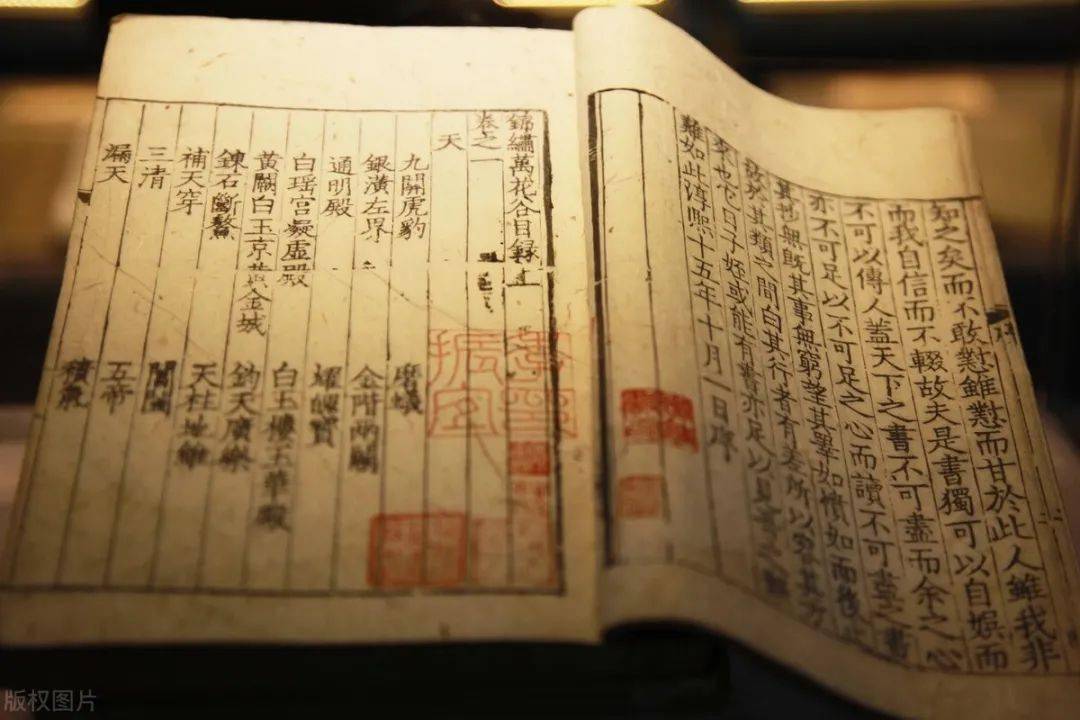 知之矣而不敢懟雖懟而甘於此人雖我非
而我自信而不輟故夫是書獨可以自娛而
不可以傳人蓋天下之書不可盡而余之心
亦不可足以不可足之心而讀不可盡之書
其抄無既其事無窮望其睪如憤如而後止
故於其類之間白其行者有差所以其方
來也它日子姪或能有書亦足以見之
難如此淳熙十五年十月一日序
錦繡萬花谷目錄
卷之一
天
九關虎豹 磨蟻
銀潢左界 金階兩闕
通明殿 耀魄寶
白瑤宮凝虛殿 白玉樓玉華殿
黃闕白玉京黃金城 鈞天廣樂
鍊石斷鰲 天柱地維
補天穿 閶闔
三清 五帝
漏天 積氣
振宜
版权图片